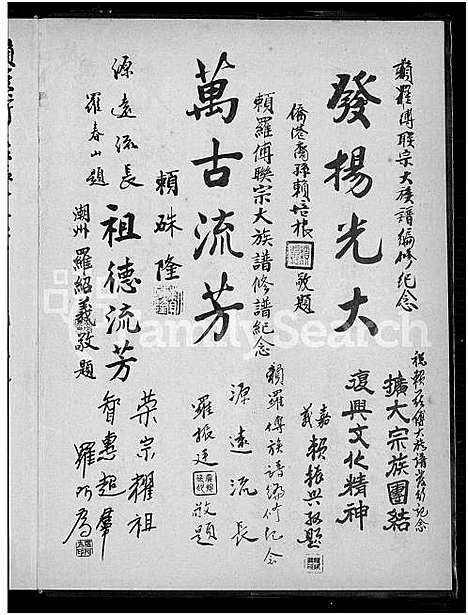 賴羅傅聯宗大族譜編修紀念
發揚光大
僑港裔孫賴培根敬題
賴羅傅聯宗大族譜修譜紀念
萬古流芳
賴硃隆
源遠流長
羅春山題
祖德流芳
潮州羅紹義敬題
祝賴羅傅大族譜發行紀念
擴大宗族團結
復興文化精神
嘉義賴振興敬題
賴羅傅族譜編修紀念
源遠流長
羅振廷敬題
榮宗耀祖
智惠起羣
羅
FamilySearch